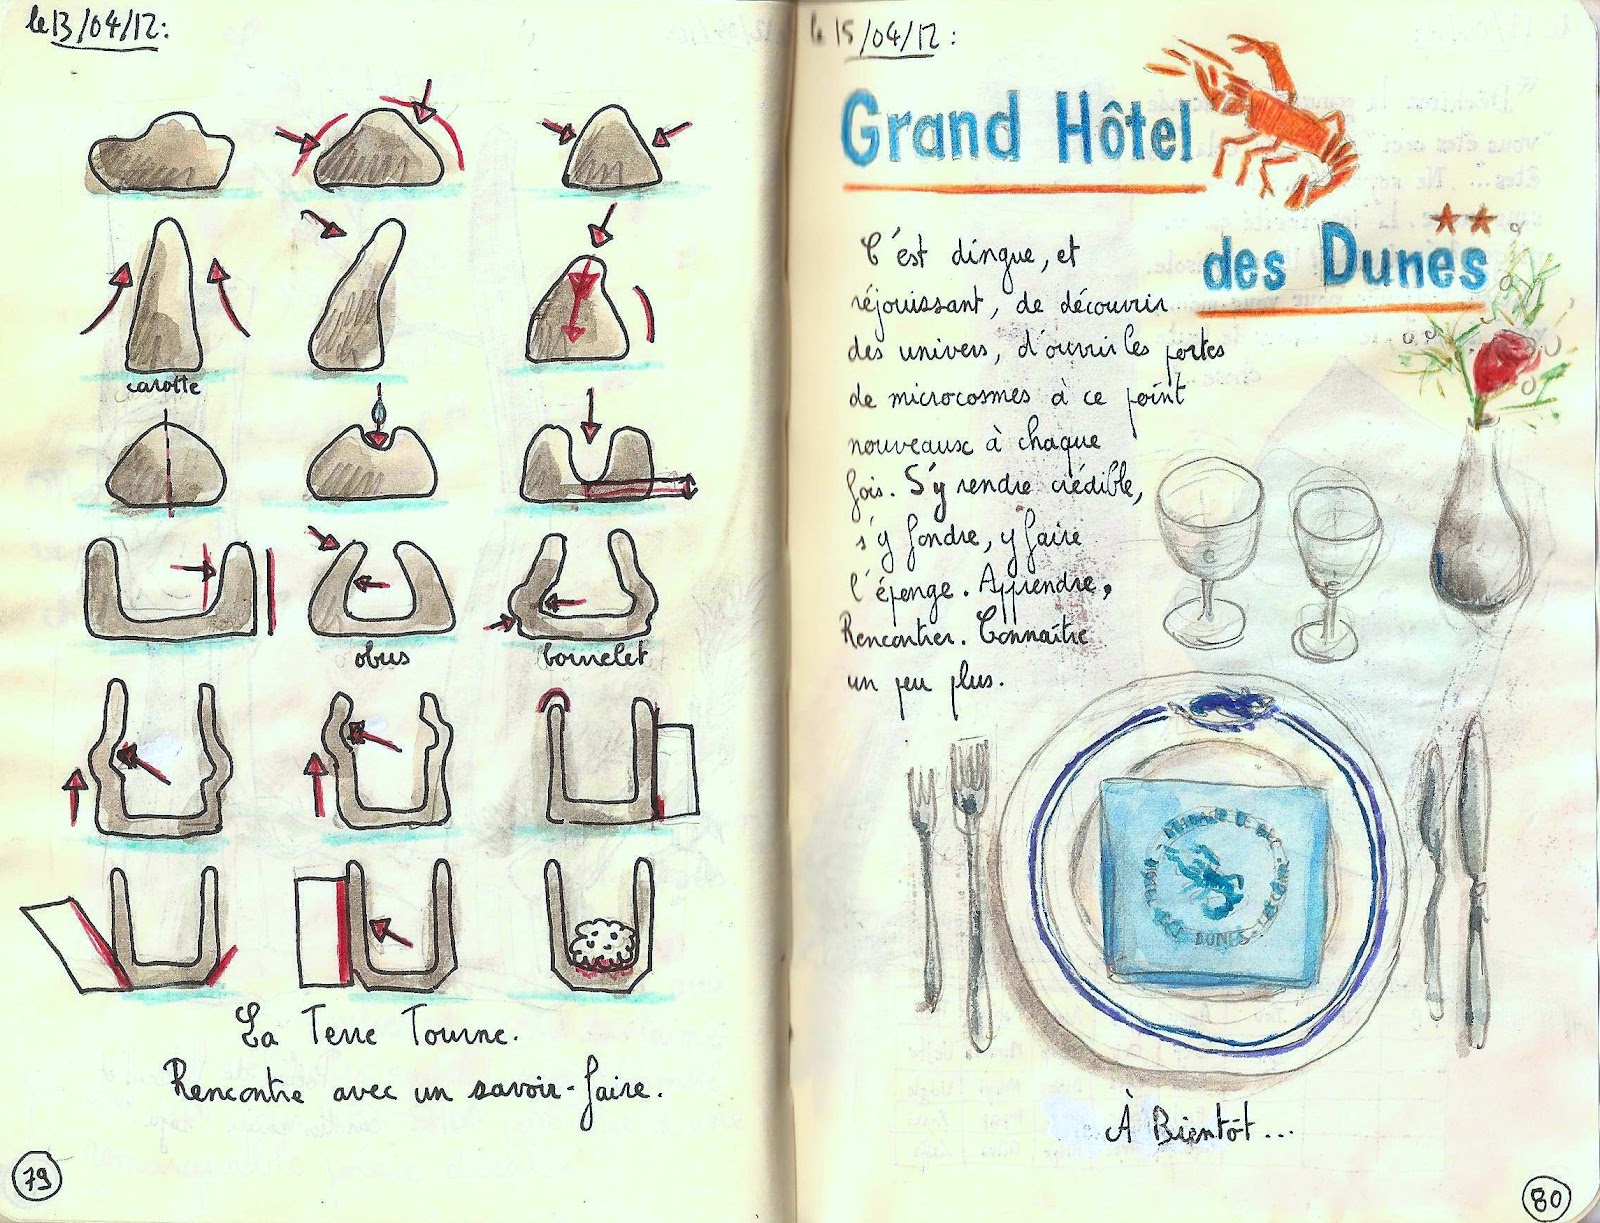 le 13/04/12:
carotte
obus
bourrelet
La Terre Tourne.
Rencontre avec un savoir-faire.
79
le 15/04/12:
Grand Hôtel
des Dunes
C'est dingue, et
réjouissant, de découvrir
des univers, d'ouvrir les portes
de microcosmes à ce point
nouveaux à chaque
fois. S'y rendre crédible,
s'y fondre, y faire
l'éponge. Apprendre.
Rencontrer. Connaître
un peu plus.
DUNES
À Bientôt...
80